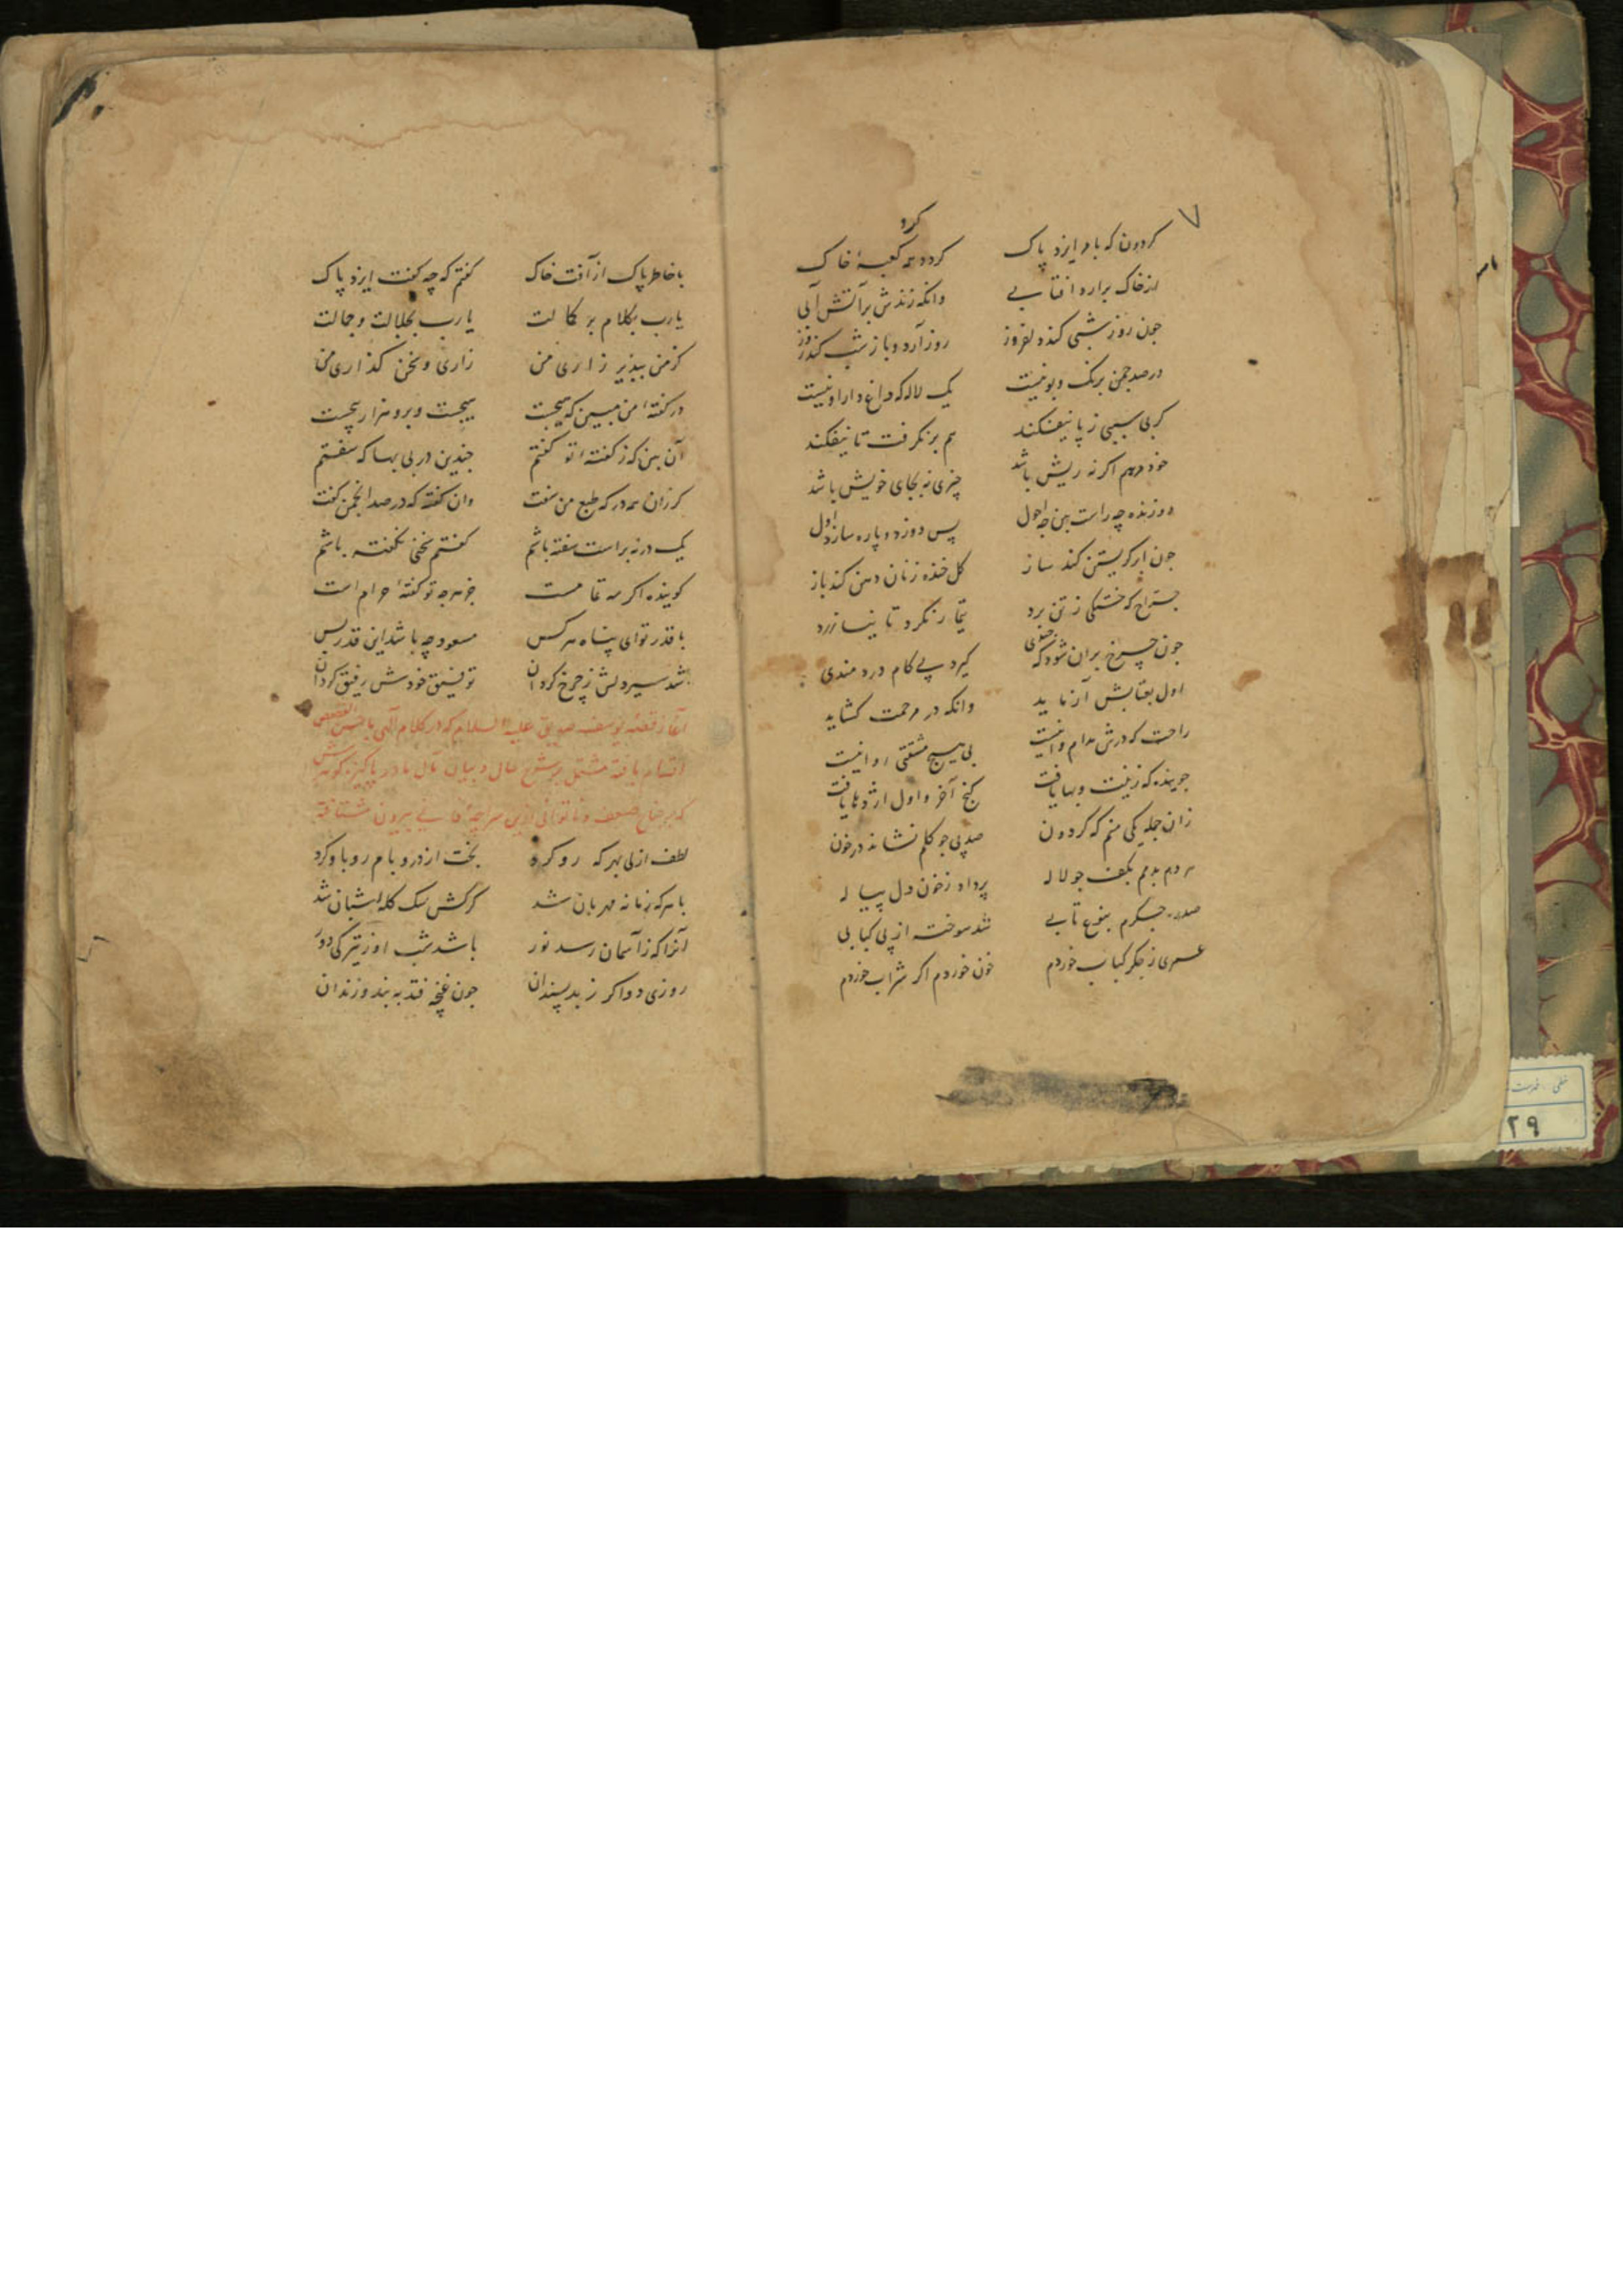 ۷
کردون که بامر ایزد پاک کردد همه کعبهٔ خاک
کرد
از خاک برارد افتابی وانکه زندش بر آتش آبی
چون روز شبی کند دلفروز روز آرد و باز شب کند روز
در صد چمن برنک و بو نیست یک لاله که داغ دار او نیست
کر بی سببی ز پا نیفکند هم بر نکرفت تا نیفکند
خود مرهم اکر نه ریش باشد چیزی نه بجای خویش باشد
دوزنده چه راست بین چه احول پس دوزد و پاره سازد اول
چون ابر کریستن کند ساز کل خنده زنان دهن کند باز
جراح که خستکی ز تن برد تیمار نکرد تا نیازرد
چون چرخ بران شود که کیرد پی کام دردمندی
اول بعتابش آزماید وانکه در مرحمت کشاید
راحت که درش مدام وا نیست بی هیچ مشقتی روا نیست
جوینده که زینت و بها یافت کنج آخر و اول اژدها یافت
زان جمله یکی منم که کردون صد پی چو کلم نشاند در خون
هر دم بدمم بکف چو لاله پر داد ز خون دل پیاله
صد ره جکرم بنوع تابی شد سوخته از پی کبابی
عمری ز جکر کباب خوردم خون خوردم اکر شراب خوردم
با خاطر پاک از آفت خاک کفتم که چه کفت ایزد پاک
یارب بکلام بر کمالت یارب بجلالت و جمالت
کز من بپذیر زاری من زاری و سخن کذاری من
در کفتهٔ من مبین که هیچست هیچست و برو هزار پیچست
آن بین که ز کفتهٔ تو کفتم چندین در بی بها که سفتم
کر زان همه در که طبع من سفت وان کفته که در صد انجمن کفت
یک در نه براست سفته باشم کفتم سخنی نکفته باشم
کوینده اکر مه تمامست جز هرچه تو کفتهٔ حرام است
با قدر تو ای پناه هر کس مسعود چه باشد این قدر بس
شد سیر دلش ز چرخ کردان توفیق خودش رفیق کردان
آغاز قصهٔ یوسف صدیق علیه السلام که در کلام آلهی باحسن القصص
اشتهار یافته مشتمل بر شرح حال و بیان مآل مادر پاکیزه کوهرش
که بر جناح ضعف و ناتوانی ازین سراچهٔ فانی بیرون شتافته
لطف ازلی بهر که رو کرد بخت از در و بام رو باو کرد
با هر که زمانه مهربان شد کرکش سک کله شبان شد
آنرا که ز آسمان رسد نور باشد شب او ز تیرکی دور
روزی دو اکر ز بد پسندان چون غنچه فتد به بند و زندان
۲۹